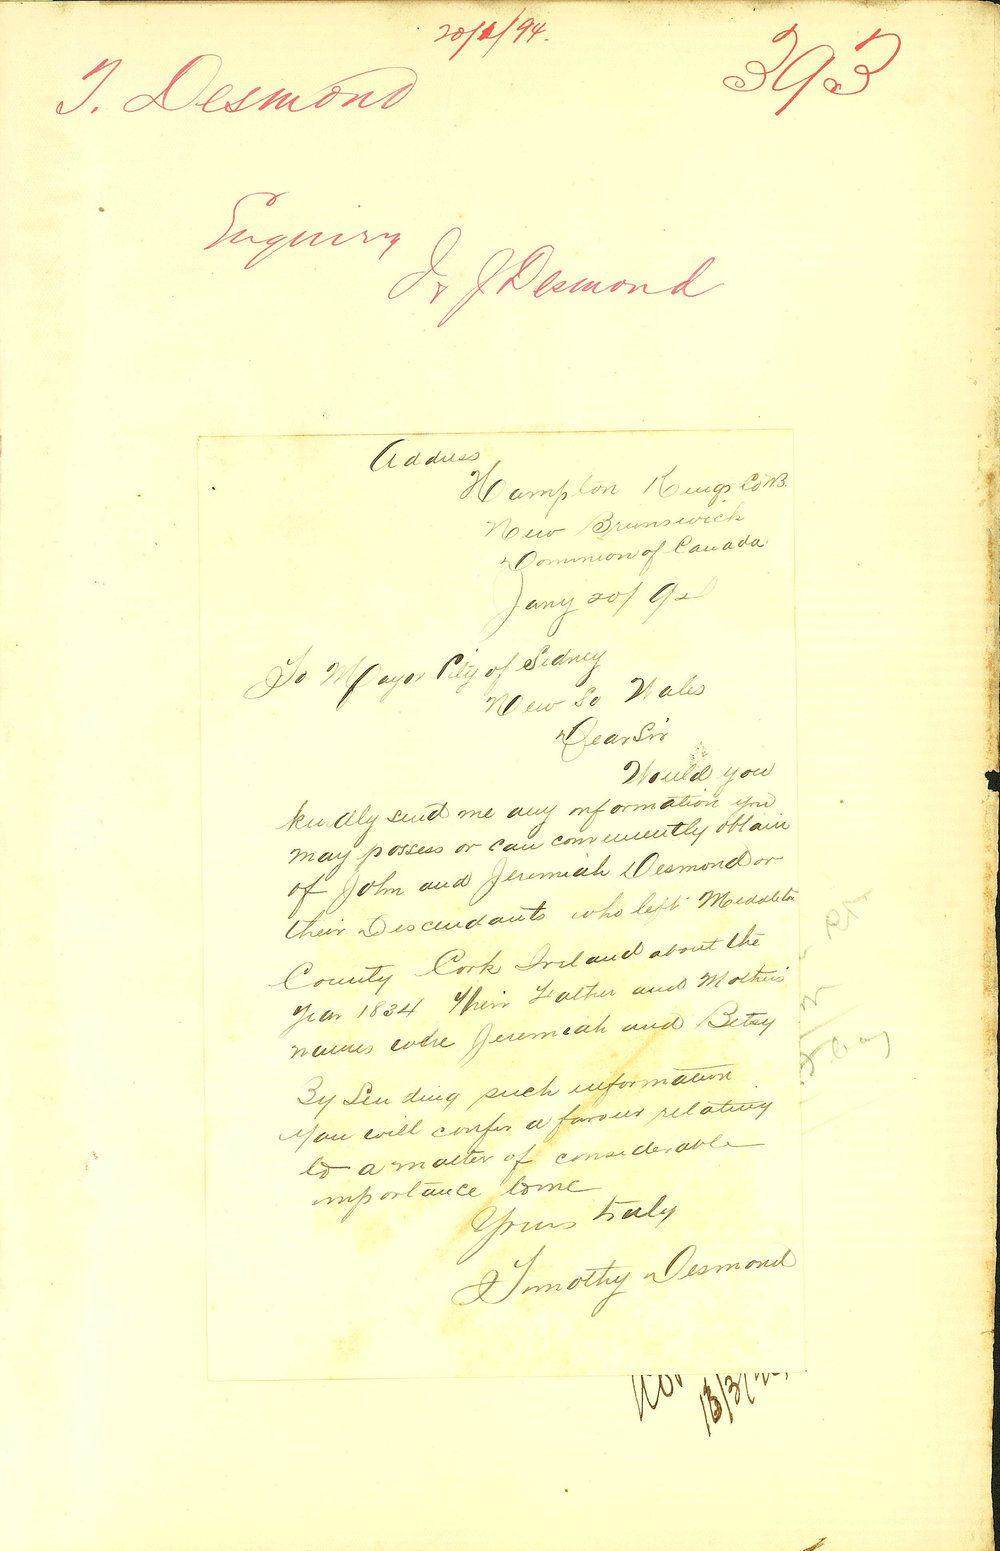 20/1/94.
393
T. Desmond
Enquiry
J & J Desmond
Address
Hampton Kings Co NB.
New Brunswick
Dominion of Canada
Jany 20/94
To Mayor City of Sidney
New So Wales
Dear Sir
Would you
kindly send me any information you
may possess or can conveniently obtain
of John and Jeremiah Desmond or
their Descendants who left Middleton
County Cork Ireland about the
Year 1834 Their Father and Mothers
names were Jeremiah and Betsy
By Sending such information
you will confer a favour relating
to a matter of considerable
importance to me
Yours truly
Timothy Desmond